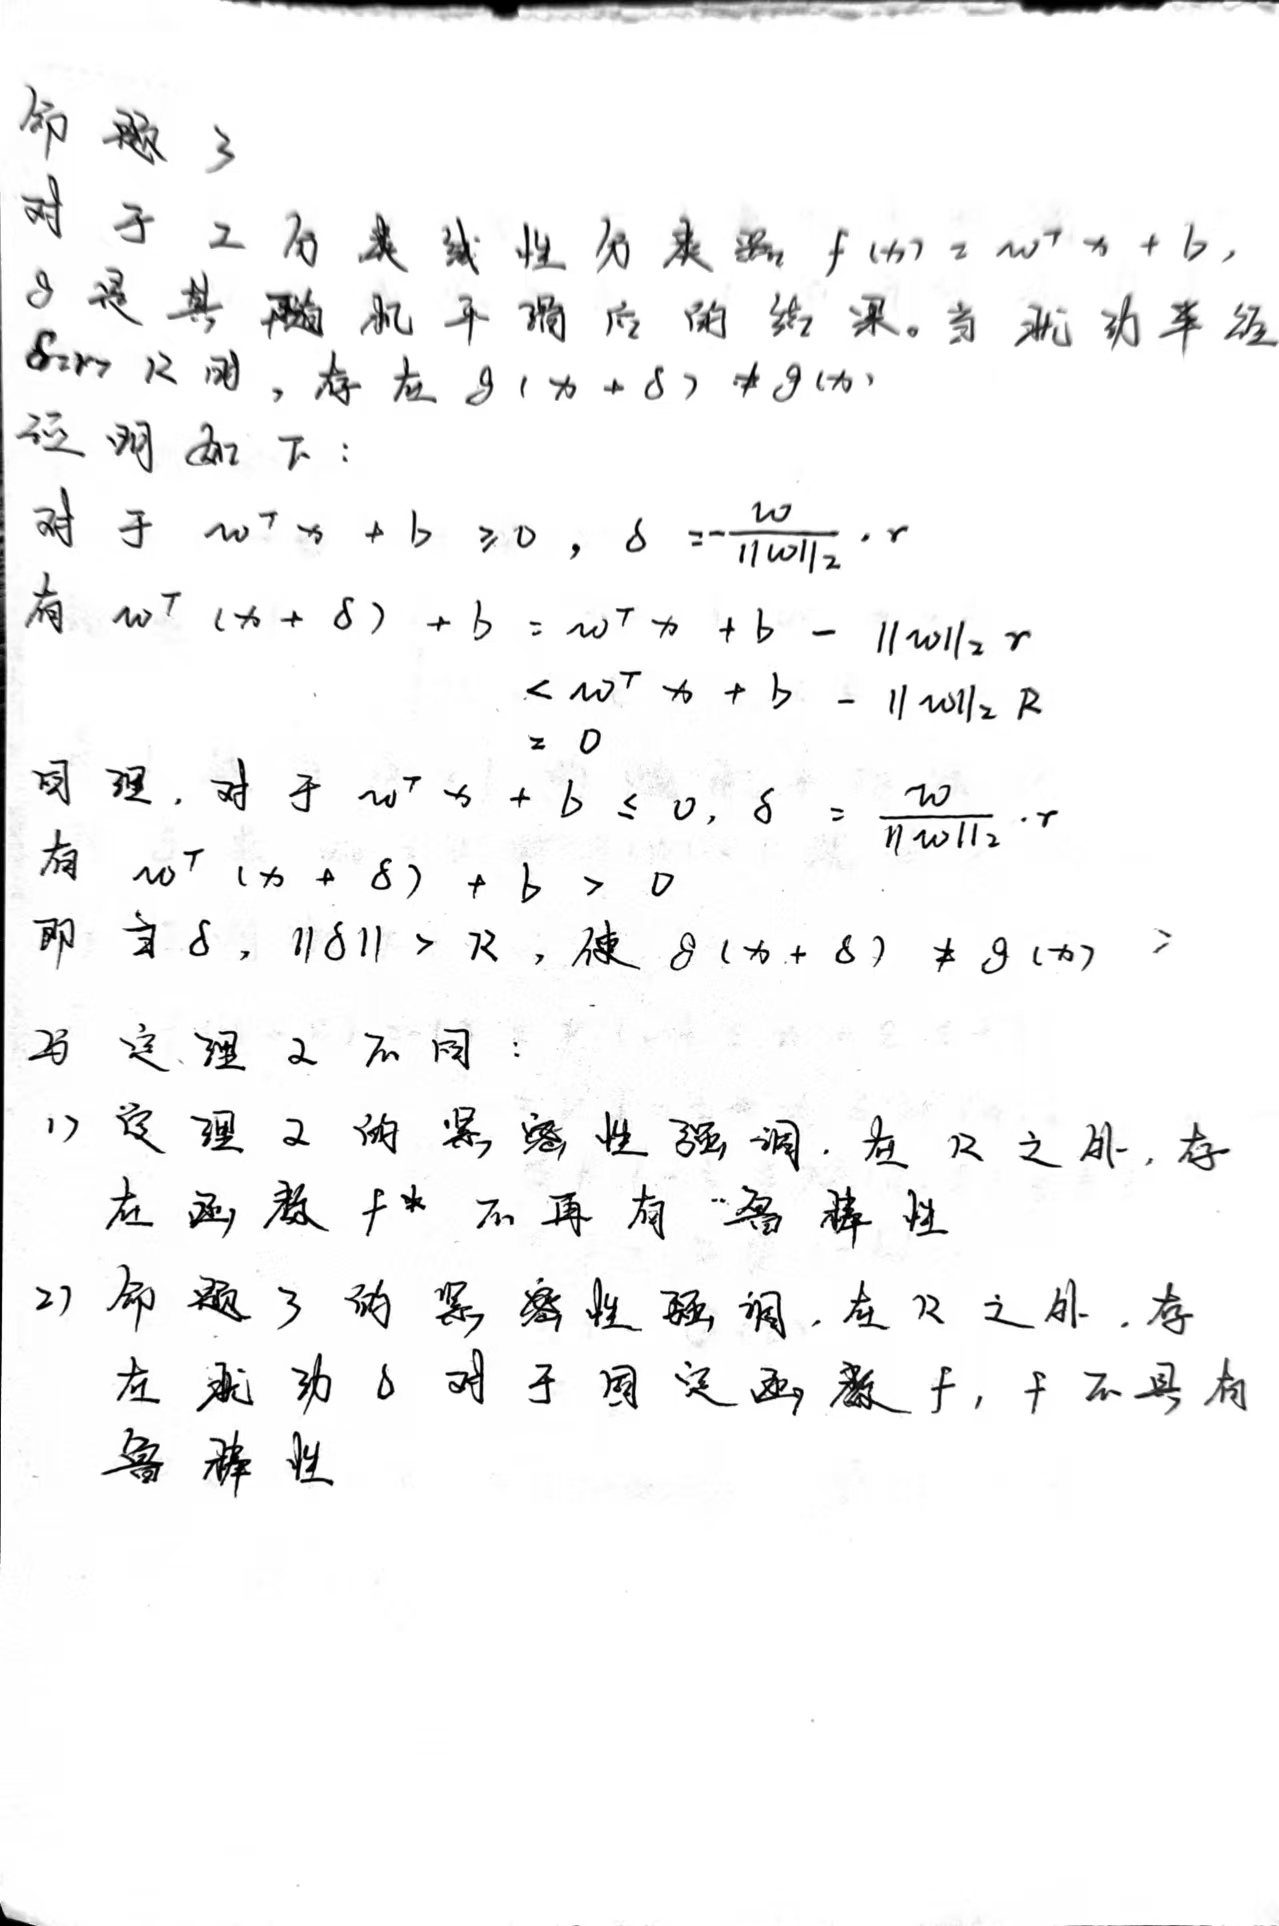 命题3
对于2分类线性分类器 f(x) = w^T x + b,
g是其随机平滑后的结果。当扰动半径
δ=r> R时,存在 g(x + δ) ≠ g(x)
证明如下:
对于 w^T x + b ≥ 0, δ = -w/||w||₂ · r
有 w^T (x + δ) + b = w^T x + b - ||w||₂ r
< w^T x + b - ||w||₂ R
= 0
同理,对于 w^T x + b ≤ 0, δ = w/||w||₂ · r
有 w^T (x + δ) + b > 0
即 δ, ||δ|| > R, 使 g(x + δ) ≠ g(x)
与定理2不同:
1) 定理2的紧密性强调,在R之外,存
在函数 f* 不再有鲁棒性
2) 命题3的紧密性强调,在R之外,存
在扰动δ对于固定函数f, f不具有
鲁棒性